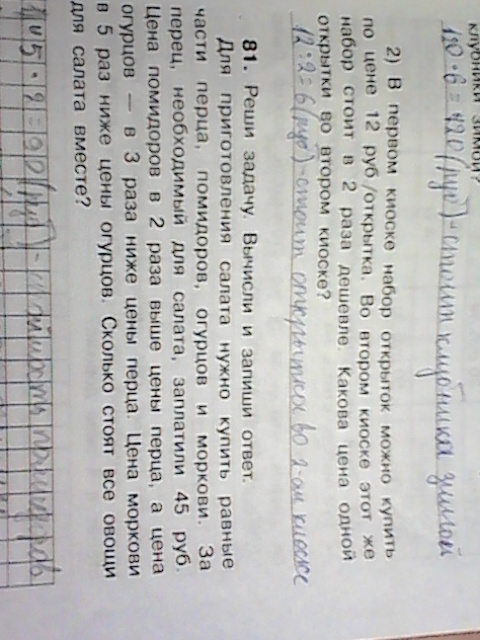 клубники зимой?
= 420 (руб) - стоит клубника зимой
2) В первом киоске набор открыток можно купить
по цене 12 руб./открытка. Во втором киоске этот же
набор стоит в 2 раза дешевле. Какова цена одной
открытки во втором киоске?
12:2=6(руб) - стоит открытка во 2-ом киоске
81. Реши задачу. Вычисли и запиши ответ.
Для приготовления салата нужно купить равные
части перца, помидоров, огурцов и моркови. За
перец, необходимый для салата, заплатили 45 руб.
Цена помидоров в 2 раза выше цены перца, а цена
огурцов — в 3 раза ниже цены перца. Цена моркови
в 5 раз ниже цены огурцов. Сколько стоят все овощи
для салата вместе?
5 · 2 = 90 (руб) - помидоров